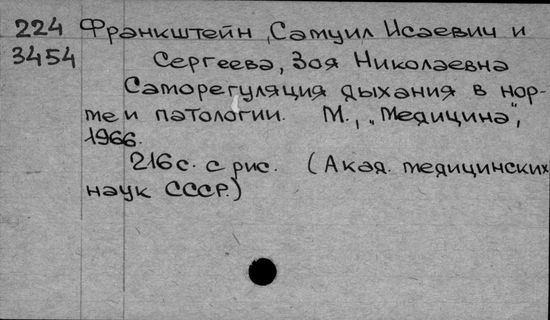 224 Франкштейн, Самуил Исаевич и
3454 Сергеева, Зоя Николаевна
Саморегуляция дыхания в нор-
ме и патологии. М., „Медицина",
1966.
216 с. с рис. (Акад. медицинских
наук СССР.)